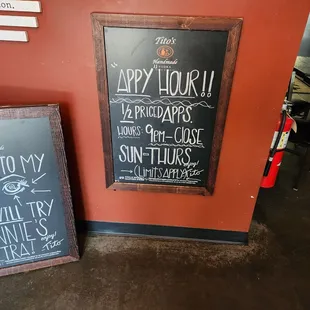 ion.
Tito's
Handmade
VODKA
"APPY HOUR!!
½ PRICED APPS.
HOURS: 9PM-CLOSE
SUN-THURS.
(LIMITS APPLY)
TO MY
WILL TRY
NNIE'S
TRA!